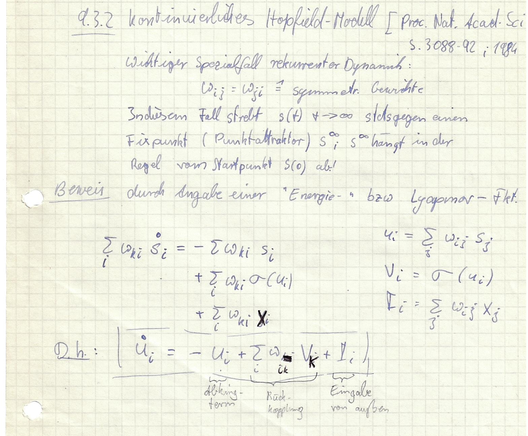 9.3.2 Kontinuierliches Hopfield-Modell [Proc. Nat. Acad. Sci
S. 3088-92, 1984
Wichtiger Spezialfall rekurrenter Dynamik:
ω_ij = ω_ji ≙ symmetr. Gewichte
In diesem Fall strebt s(t) t→∞ stets gegen einen
Fixpunkt (Punktattraktor) s_i^∞, s^∞ hängt in der
Regel vom Startpunkt s(0) ab!
Beweis durch Angabe einer "Energie-" bzw Lyapunov-Fkt.
∑_i ω_ki ṡ_i = - ∑ ω_ki s_i
+ ∑_i ω_ki σ(u_i)
+ ∑_i ω_ki X_i
u_i = ∑_j ω_ij s_j
V_i = σ(u_i)
I_i = ∑_j ω_ij X_j
D.h.: u̇_i = - u_i + ∑_i ω_ik V_k + I_i
term
Rück-
kopplung
Eingabe
von außen